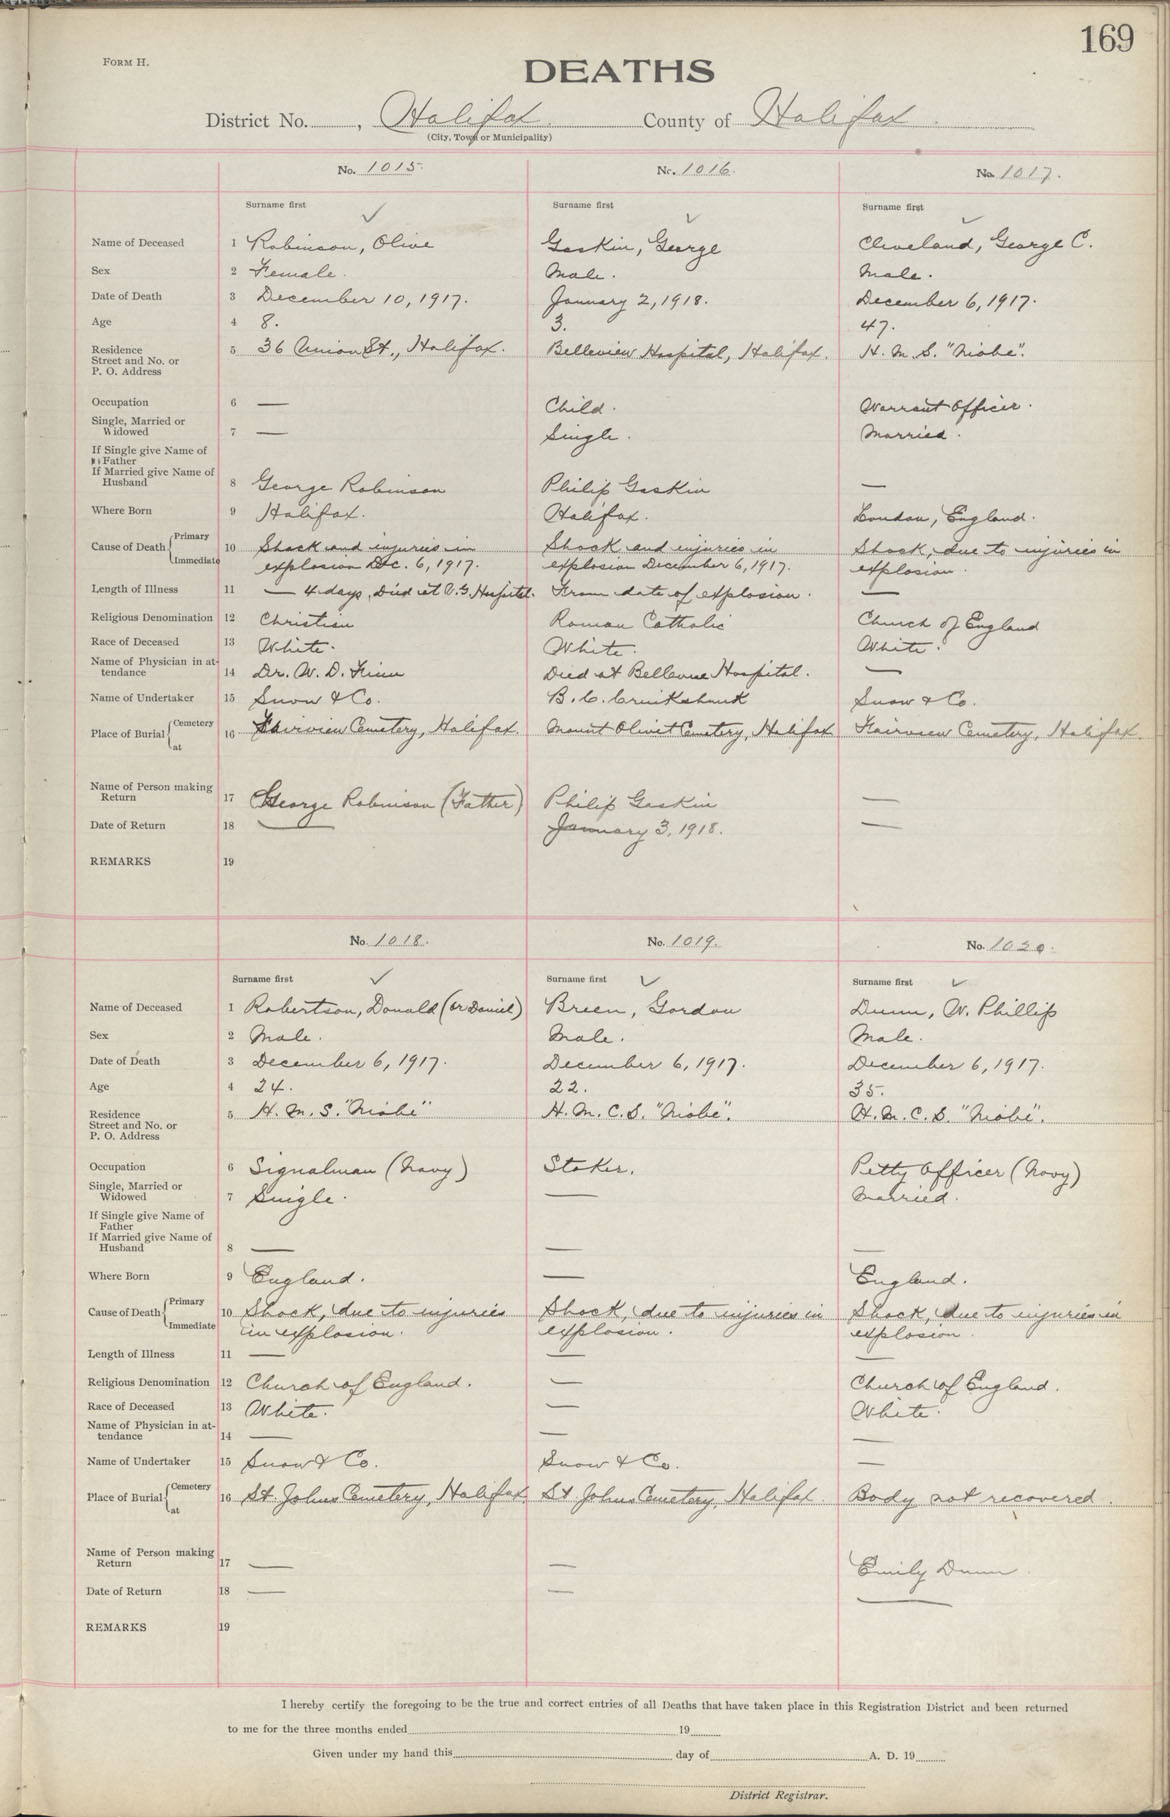 169
FORM H.
DEATHS
District No. , Halifax County of Halifax
(City, Town or Municipality)
No. 1015. No. 1016. No. 1017.
Surname first Surname first Surname first
Name of Deceased 1 Robinson, Olive Gaskin, George Cleveland, George C.
Sex 2 Female. Male. Male.
Date of Death 3 December 10, 1917. January 2, 1918. December 6, 1917.
Age 4 8. 3. 47.
Residence 5 36 Union St., Halifax. Belleview Hospital, Halifax. H. M. S. "Niobe".
Street and No. or
P. O. Address
Occupation 6 — Child. Warrant Officer.
Single, Married or
Widowed 7 — Single. Married.
If Single give Name of
Father
If Married give Name of
Husband 8 George Robinson Philip Gaskin —
Where Born 9 Halifax. Halifax. London, England.
Cause of Death { Primary 10 Shock and injuries in Shock and injuries in Shock, due to injuries in
Immediate explosion Dec. 6, 1917. explosion December 6, 1917. explosion.
Length of Illness 11 — 4 days, Died at V. G. Hospital. From date of explosion. —
Religious Denomination 12 Christian Roman Catholic Church of England
Race of Deceased 13 White. White. White.
Name of Physician in at-
tendance 14 Dr. W. D. Finn Died at Bellevue Hospital. —
Name of Undertaker 15 Snow & Co. B. C. Cruikshank Snow & Co.
Place of Burial { Cemetery 16 Fairview Cemetery, Halifax. Mount Olivet Cemetery, Halifax Fairview Cemetery, Halifax.
at
Name of Person making
Return 17 George Robinson (Father) Philip Gaskin —
Date of Return 18 — January 3, 1918. —
REMARKS 19
No. 1018. No. 1019. No. 1020.
Surname first Surname first Surname first
Name of Deceased 1 Robertson, Donald (or Daniel) Breen, Gordon Dunn, W. Phillip
Sex 2 Male. Male. Male.
Date of Death 3 December 6, 1917. December 6, 1917. December 6, 1917.
Age 4 24. 22. 35.
Residence 5 H. M. S. "Niobe" H. M. C. S. "Niobe". H. M. C. S. "Niobe".
Street and No. or
P. O. Address
Occupation 6 Signalman (Navy) Stoker. Petty Officer (Navy)
Single, Married or
Widowed 7 Single. — Married.
If Single give Name of
Father
If Married give Name of
Husband 8 — — —
Where Born 9 England. — England.
Cause of Death { Primary 10 Shock, due to injuries Shock, due to injuries in Shock, due to injuries in
Immediate in explosion. explosion. explosion.
Length of Illness 11 — — —
Religious Denomination 12 Church of England. — Church of England.
Race of Deceased 13 White. — White.
Name of Physician in at-
tendance 14 — — —
Name of Undertaker 15 Snow & Co. Snow & Co. —
Place of Burial { Cemetery 16 St. Johns Cemetery, Halifax. St Johns Cemetery, Halifax. Body not recovered.
at
Name of Person making
Return 17 — — Emily Dunn.
Date of Return 18 — — —
REMARKS 19
I hereby certify the foregoing to be the true and correct entries of all Deaths that have taken place in this Registration District and been returned
to me for the three months ended 19
Given under my hand this day of A. D. 19
District Registrar.